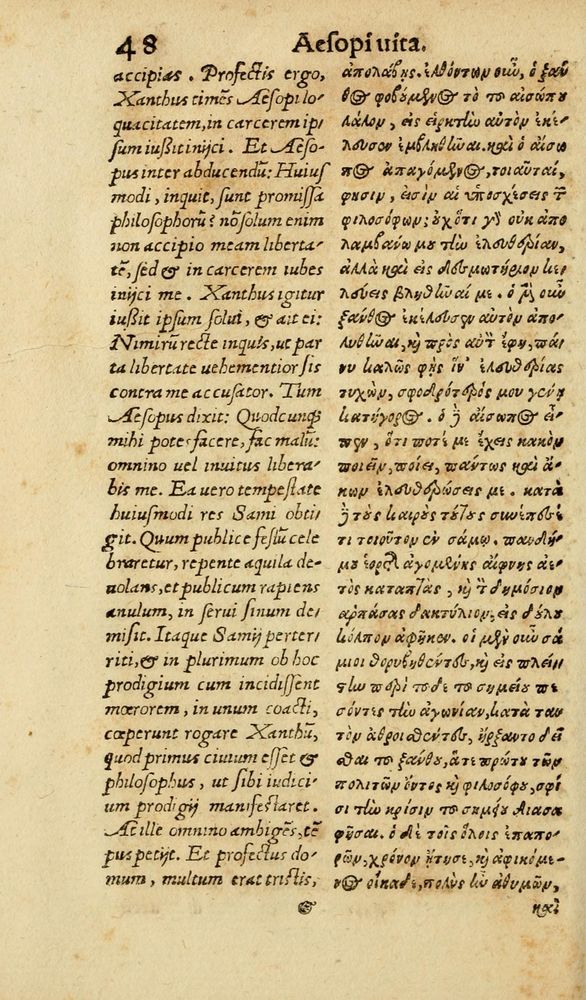 48 Aesopi uita.
accipias. Profectis ergo,
Xanthus timēs Aesopi lo-
quacitatem, in carcerem ip-
sum iußit inijci. Et Aeso-
pus inter abducendū: Huius
modi, inquit, sunt promissa
philosophorū? nō solum enim
non accipio meam liberta-
tē, sed & in carcerem iubes
inijci me. Xanthus igitur
iußit ipsum solui, & ait ei:
Nimirū recte inquis, ut par
ta libertate uehementior sis
contra me accusator. Tum
Aesopus dixit: Quodcunq;
mihi potes facere, fac malū:
omnino uel inuitus libera-
bis me. Ea uero tempestate
huiusmodi res Sami obti-
git. Quum publice festū cele
braretur, repente aquila de-
uolans, et publicum rapiens
anulum, in serui sinum de-
misit. Itaque Samij perter-
riti, & in plurimum ob hoc
prodigium cum incidissent
mœrorem, in unum coacti,
cœperunt rogare Xanthū,
quod primus ciuium esset &
philosophus, ut sibi iudici-
um prodigij manifestaret.
Ac ille omnino ambigēs, tē
pus petijt. Et profectus do-
mum, multum erat tristis,
&
ἀπολάβῃς. ἐλθόντων οὖν, ὁ ξάν
θος φοβούμενος τὸ τοῦ αἰσώπου
λάλον, εἰς εἱρκτὴν αὐτὸν ἐκέ-
λευσεν ἐμβληθῆναι. καὶ ὁ αἴσω
πος ἀπαγόμενος, τοιαῦται,
φησιν, εἰσὶν αἱ ὑποσχέσεις τῶν
φιλοσόφων; οὐχ ὅτι γὰρ οὐκ ἀπο
λαμβάνω μου τὴν ἐλευθερίαν,
ἀλλὰ καὶ εἰς δεσμωτήριον κε-
λεύεις βληθῆναί με. ὁ μὲν οὖν
ξάνθος ἐκέλευσεν αὐτὸν ἀπο-
λυθῆναι, καὶ πρὸς αὐτὸν ἔφη, πάν
υ καλῶς φῂς ἵν' ἐλευθερίας
τυχὼν, σφοδρότερός μου γένῃ
κατήγορος. ὁ δὲ αἴσωπος εἶ-
πεν, ὅτι ποτέ με ἔχεις κακὸν
ποιεῖν, ποίει, πάντως καὶ ἄ-
κων ἐλευθερώσεις με. κατὰ
δὲ τοὺς καιροὺς τούτους συνέπεσέ
τι τοιοῦτον ἐν σάμῳ. πανδή-
μου ἑορτῆς ἀγομένης αἴφνης ἀε-
τὸς καταπτὰς, καὶ τὸν δημόσιον
ἁρπάσας δακτύλιον, εἰς δούλου
κόλπον ἀφῆκεν. οἱ μὲν οὖν σά
μιοι θορυβηθέντες, καὶ εἰς πλεί-
στην περὶ τοῦδε τοῦ σημείου πε-
σόντες τὴν ἀγωνίαν, κατὰ ταυ
τὸν ἀθροισθέντες, ἤρξαντο δεῖ
σθαι τοῦ ξάνθου, ἅτε πρώτου τῶν
πολιτῶν ὄντος καὶ φιλοσόφου, σφί
σι τὴν κρίσιν τοῦ σημείου διασα
φῆσαι. ὁ δὲ τοῖς ὅλοις ἐπαπο-
ρῶν, χρόνον ᾔτησε, καὶ ἀφικόμε-
νος οἴκαδε, πολὺς ἦν ἀθυμῶν,
καὶ